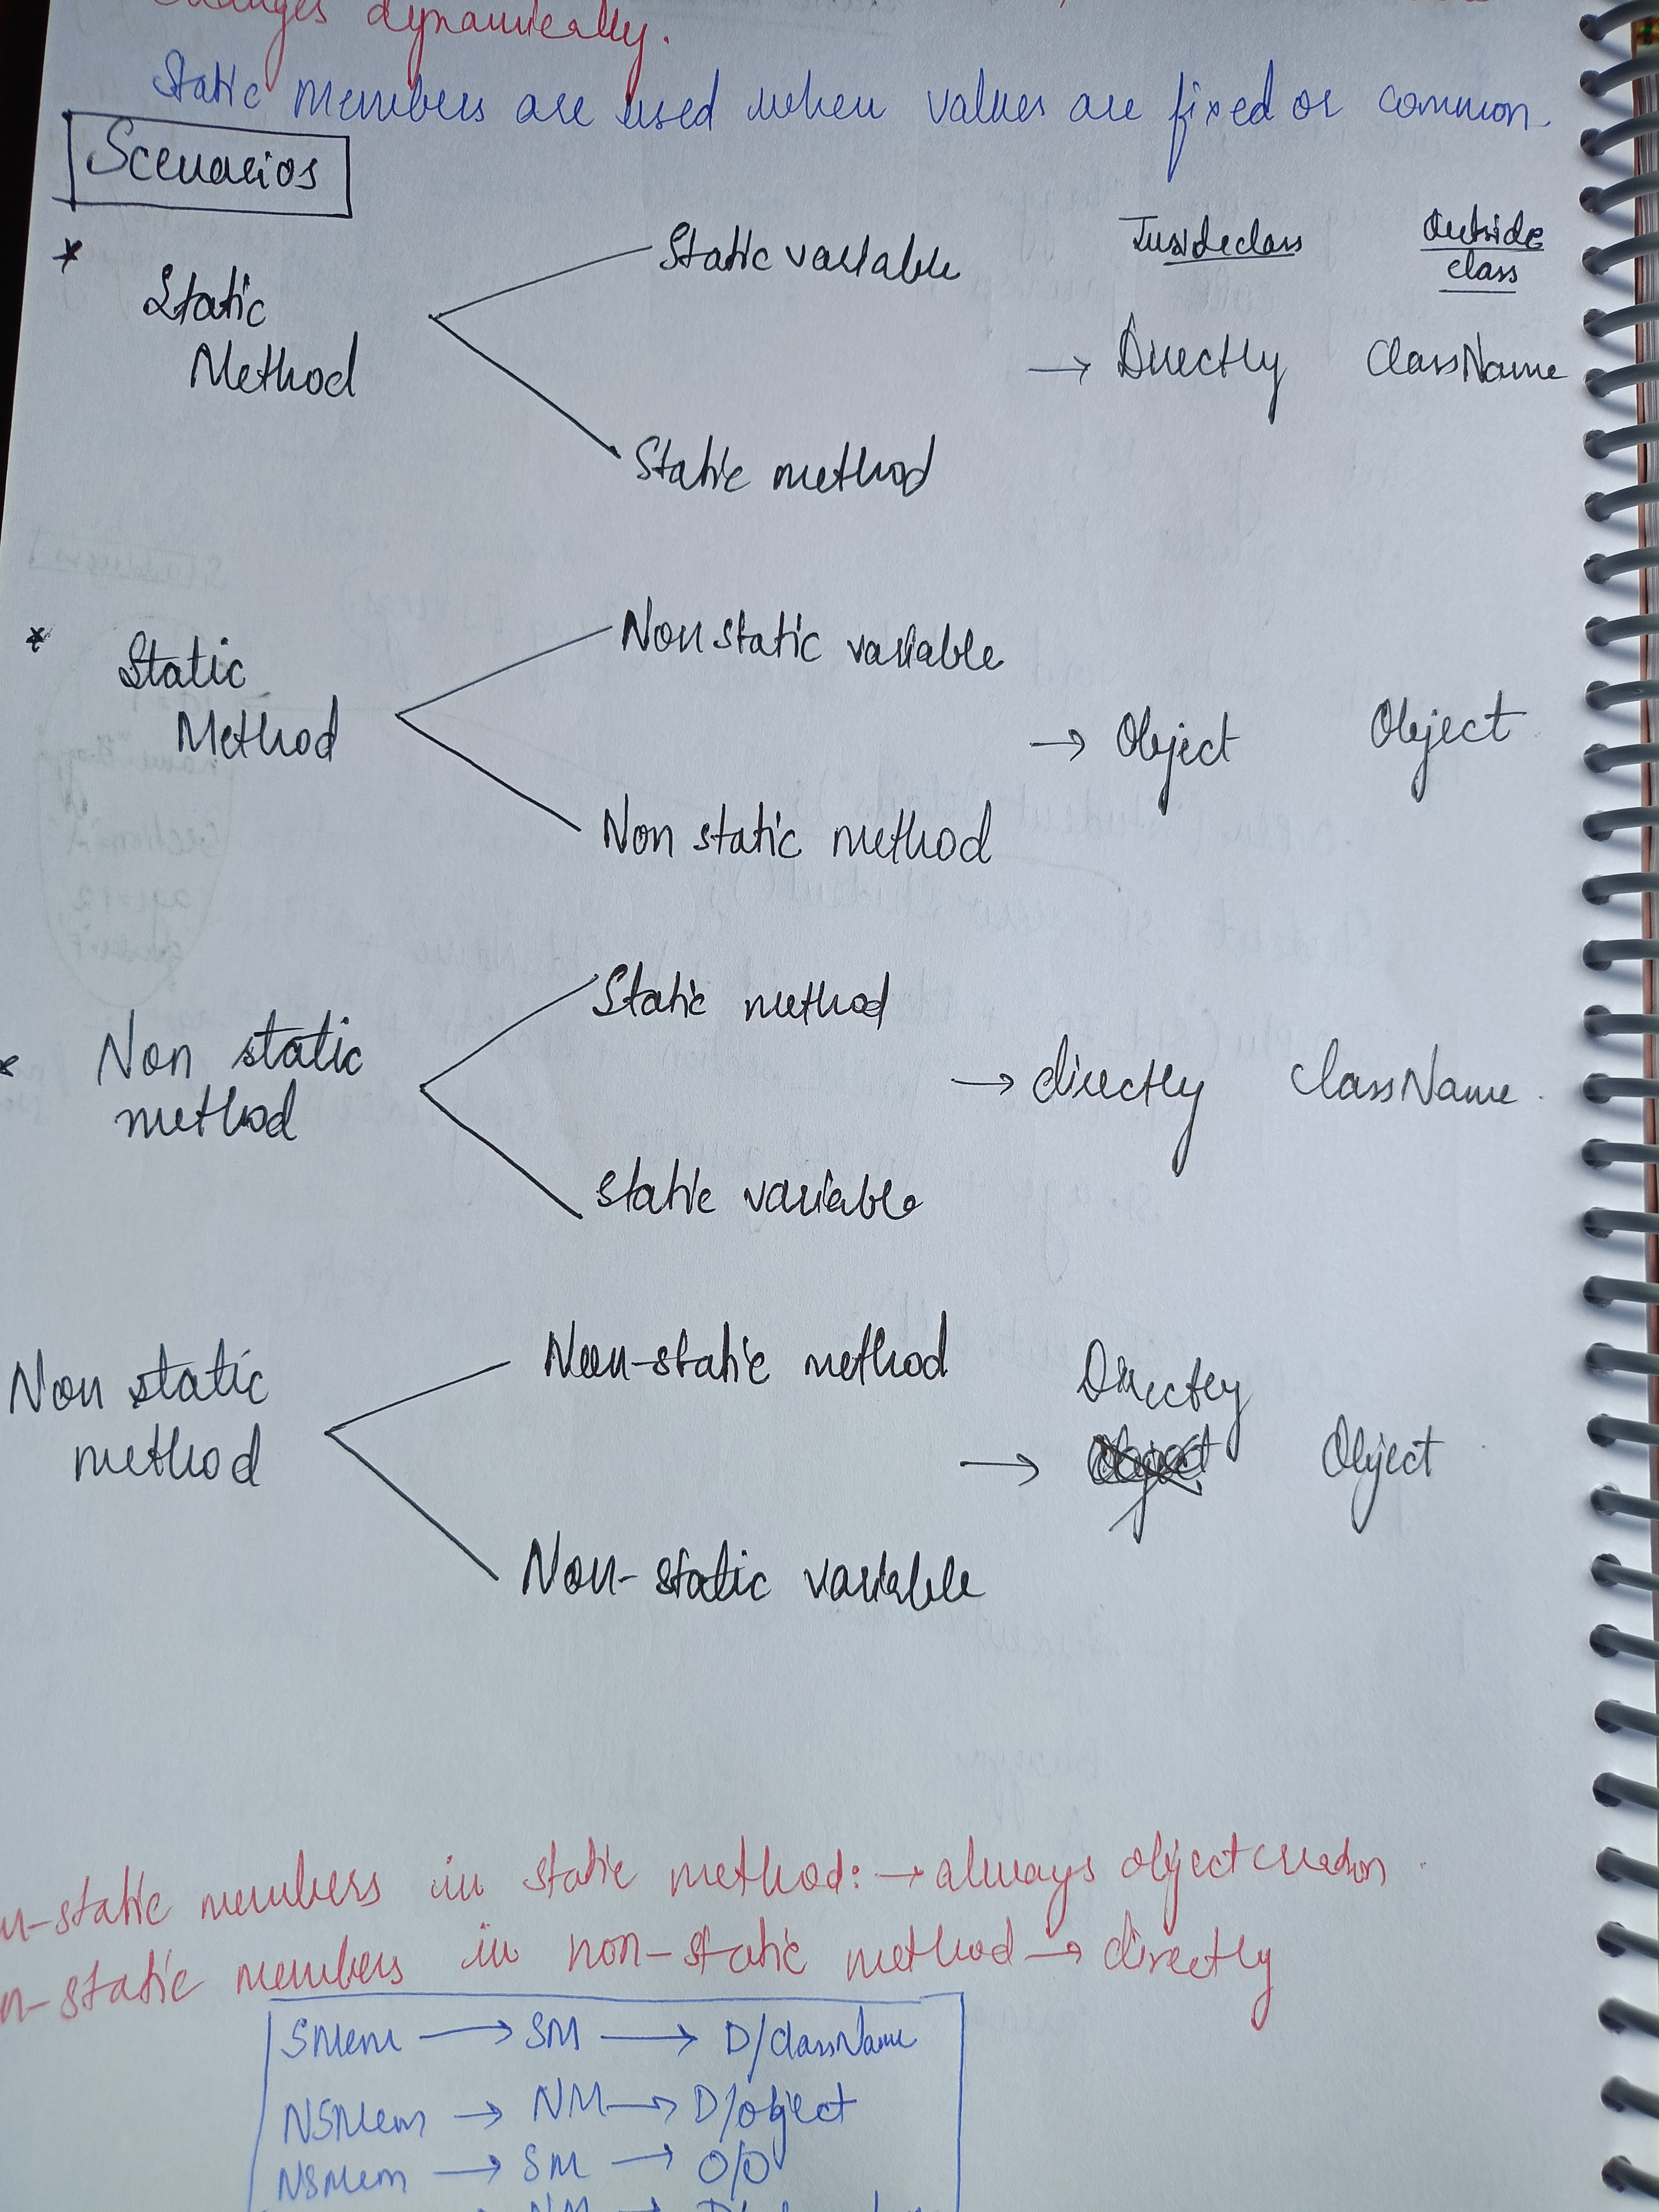 changes dynamically.
Static members are used when values are fixed or common.
Scenarios
* Static Method
Static variable
Static method
Insideclass
Outside class
→ Directly ClassName
* Static Method
Non static variable
Non static method
→ Object Object
* Non static method
Static method
Static variable
→ directly ClassName.
Non static method
Non-static method
Non-static variable
Directly
→ Object
n-static members in static method: → always object creation.
n-static members in non-static method → directly
SMem → SM → D/ClassName
NSMem → NM → D/object
NSMem → SM → O/O
NM →